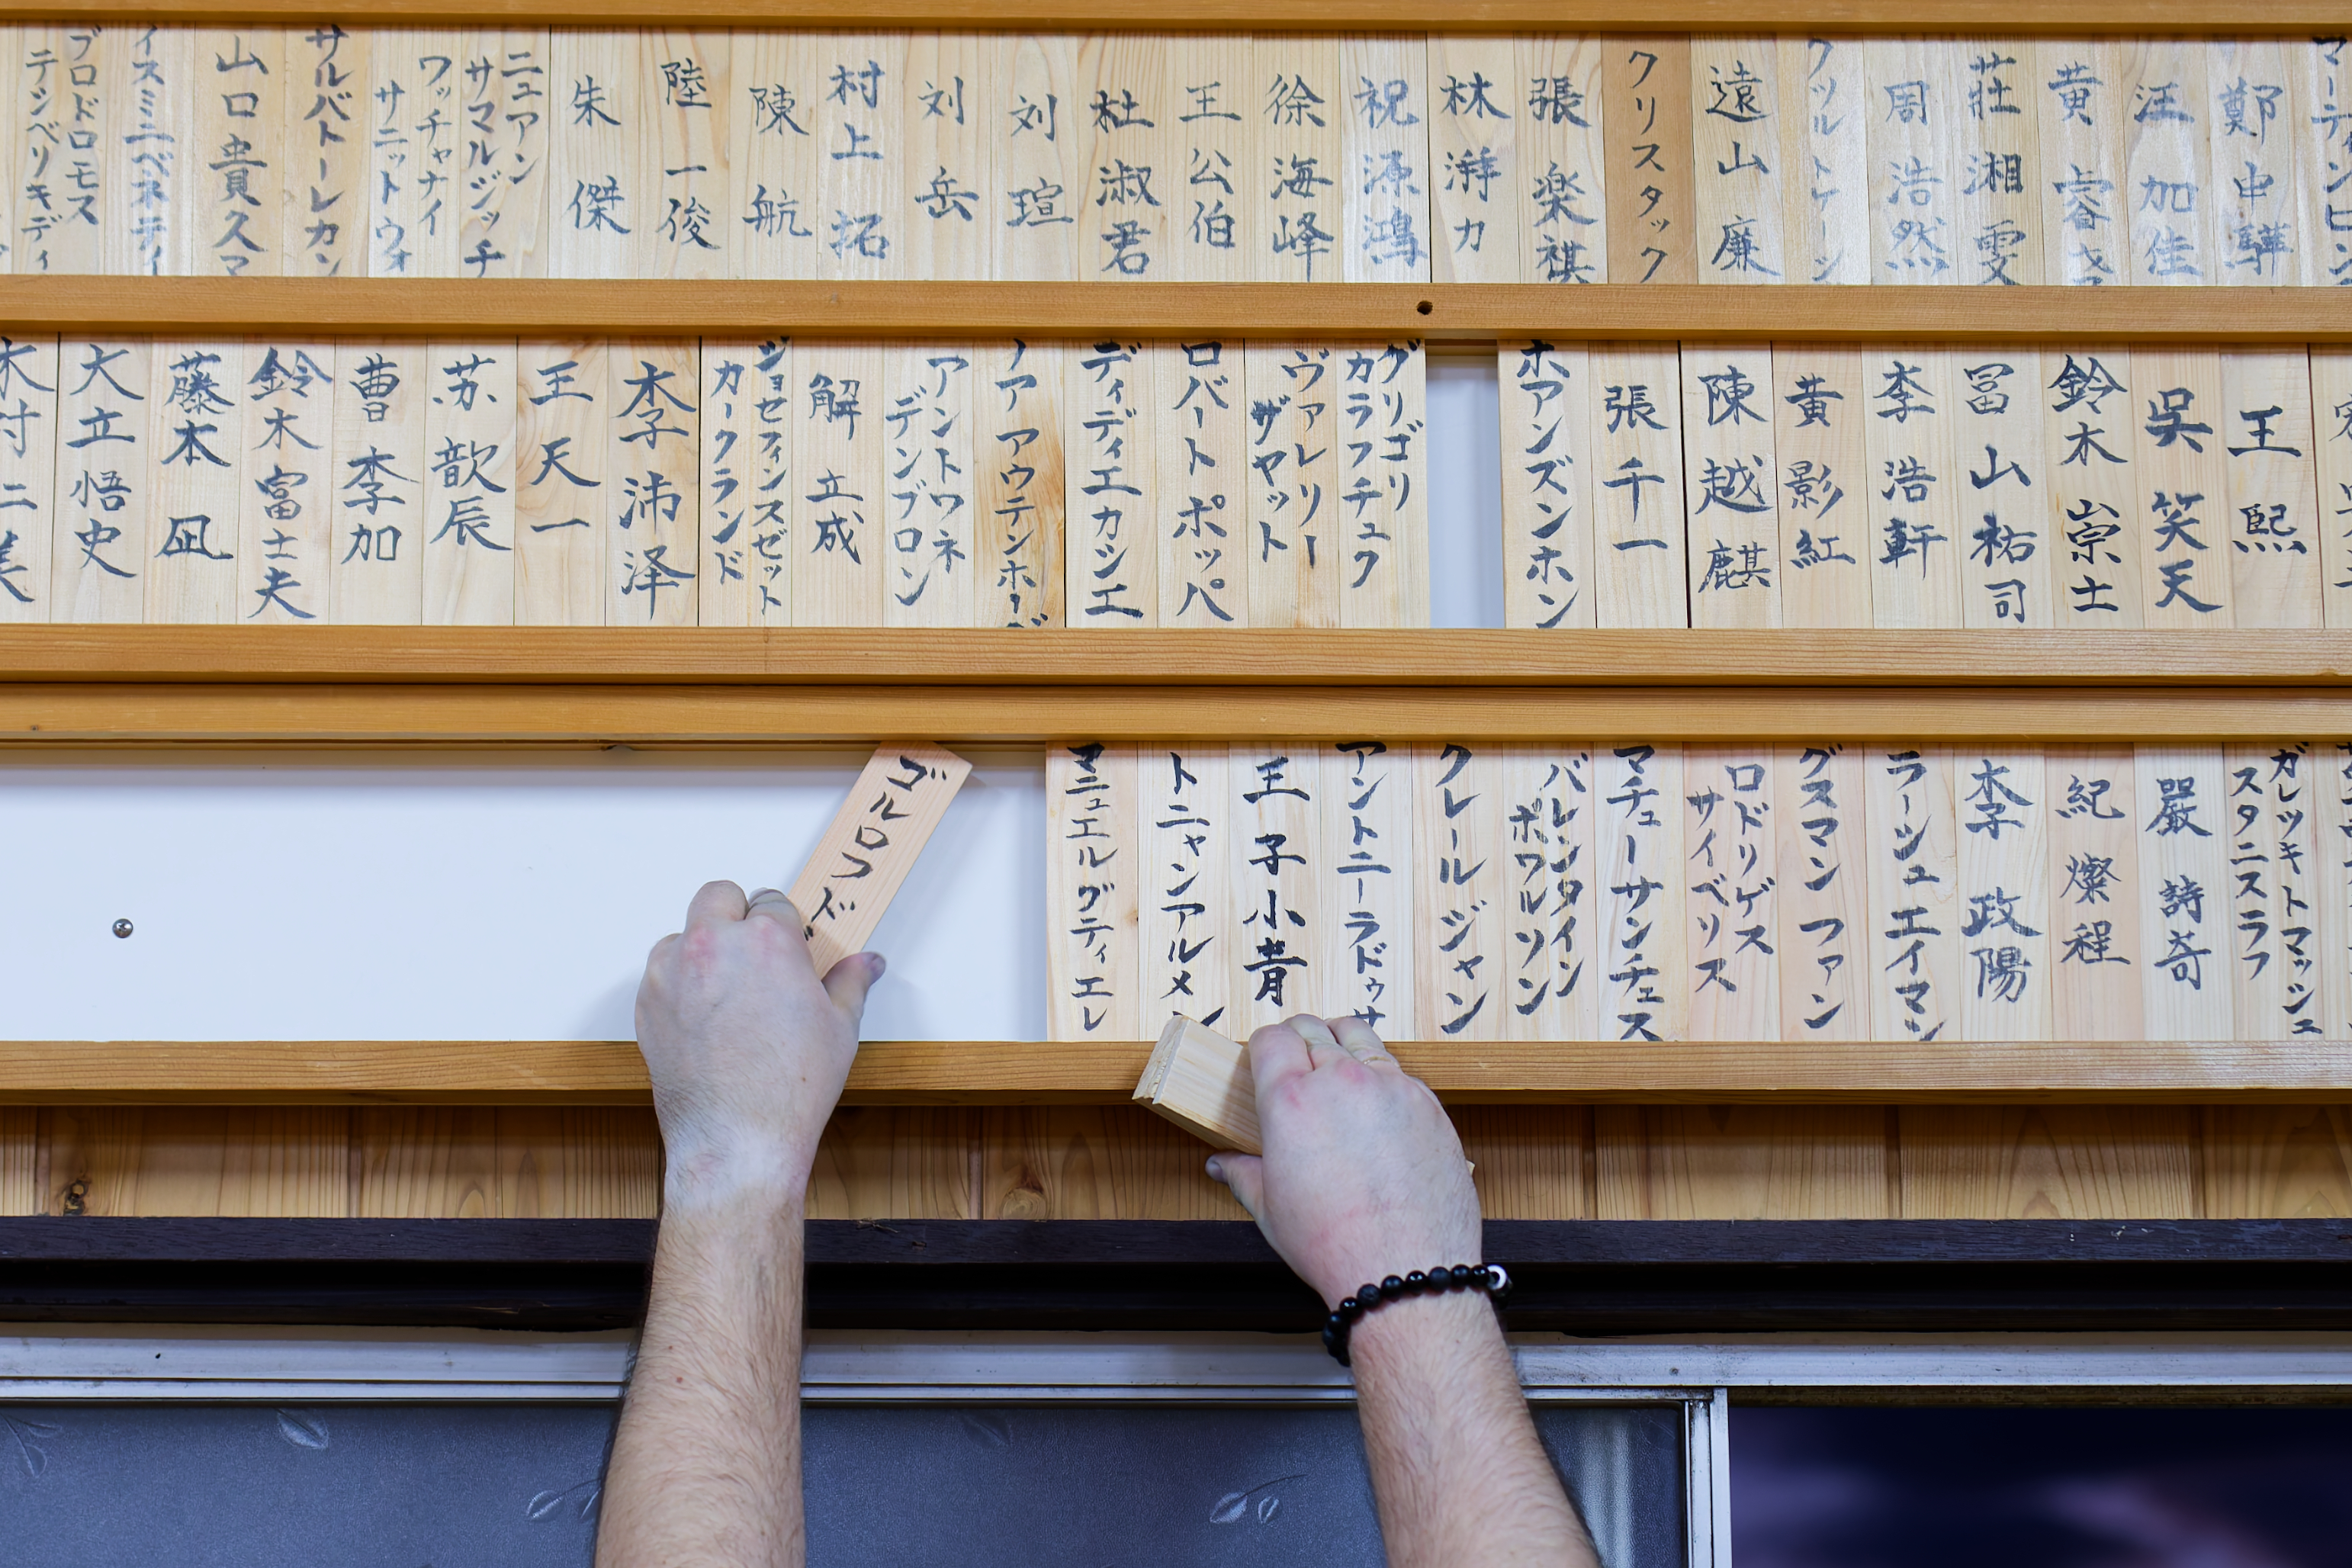 鄭中驊
汪加佳
黄睿
莊湘雯
周浩然
遠山廉
クリスタック
張楽祺
林瀞力
祝源鴻
徐海峰
王公伯
杜淑君
刘瑄
刘岳
村上拓
陳航
陸一俊
朱傑
ニュアン
サマルジッチ
ワッチャナイ
サニットウォ
サルバトーレカン
山口貴久マ
イスミニベネティ
ブロドロモス
テンベリキディ
王熙
呉笑天
鈴木崇士
冨山祐司
李浩軒
黄影紅
陳越麒
張千一
ホアンズンホン
グリゴリ
カラフチュク
ヴァレリー
ザヤット
ロバートポッパ
ディディエカジエ
ノアアウテンホーヴ
アントワネ
デンブロン
解立成
ジョセフィンスゼット
カークランド
李沛泽
王天一
苏歆辰
曹李加
鈴木富士夫
藤本凪
大立悟史
ガレツキトマッシュ
スタニスラフ
嚴詩奇
紀燦程
李政陽
ラージュエイマン
グスマンファン
ロドリゲス
サイベリス
マチューサンチェス
バレンタイン
ポワルソン
クレールジャン
アントニーラドゥサ
王子小青
トニャンアルメン
マニュエルグティエレ
ゴルロフイ